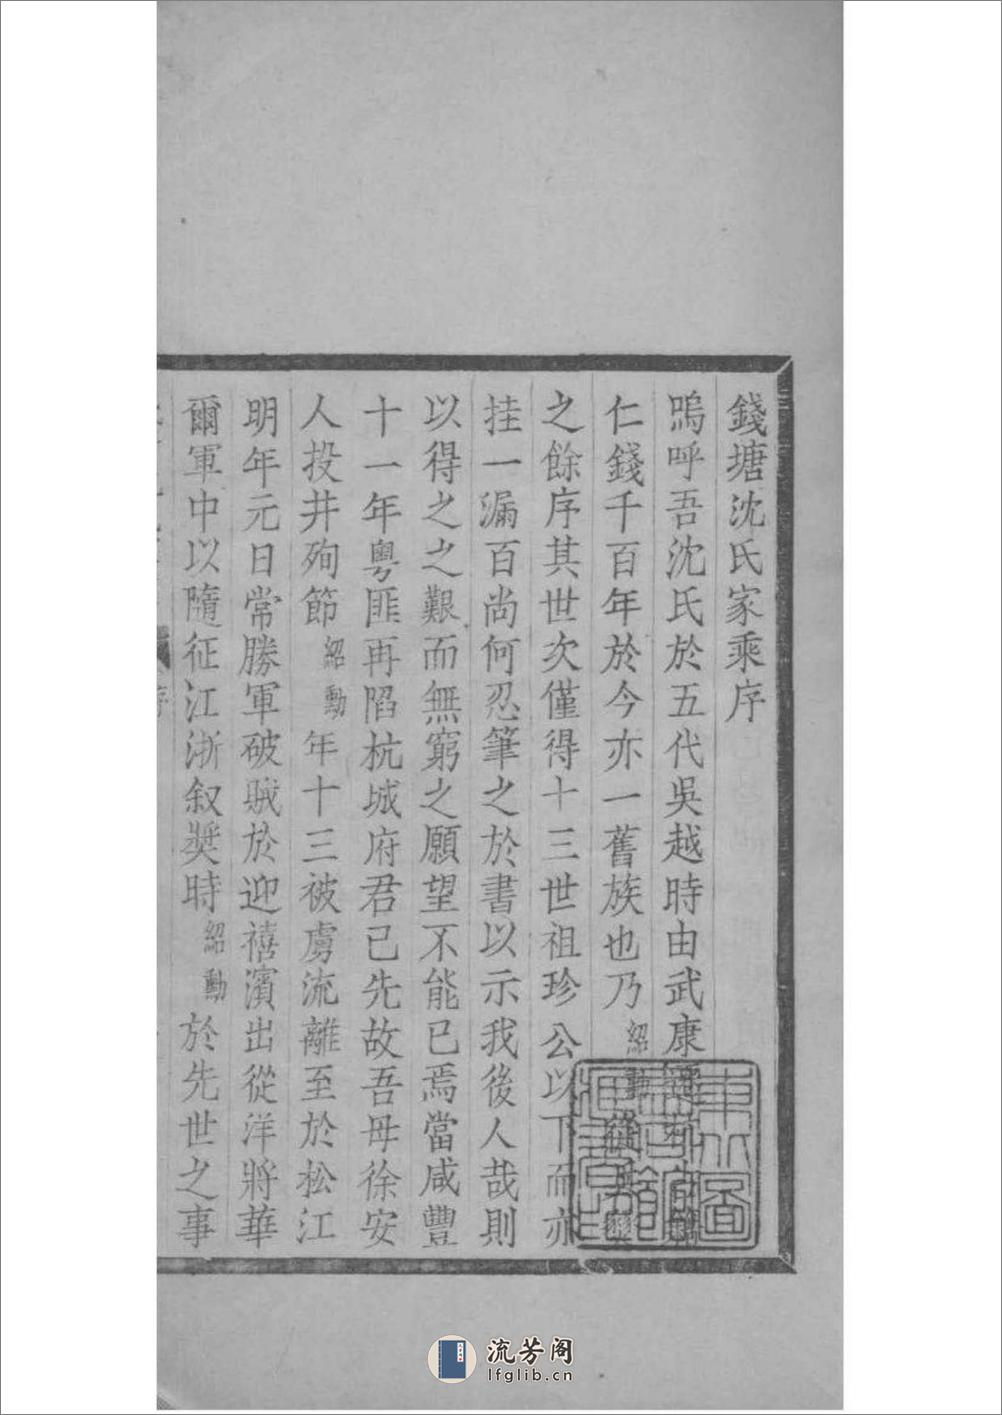 錢塘沈氏家乘序
嗚呼吾沈氏於五代吳越時由武康
仁錢千百年於今亦一舊族也乃紹
之餘序其世次僅得十三世祖珍公以下而亦
挂一漏百尚何忍筆之於書以示我後人哉則
以得之之艱而無窮之願望不能已焉當咸豐
十一年粵匪再陷杭城府君已先故吾母徐安
人投井殉節紹勳年十三被虜流離至於松江
明年元日常勝軍破賊於迎禧濱出從洋將華
爾軍中以隨征江浙叙奬時紹勳於先世之事
序
流芳阁
lfglib.cn